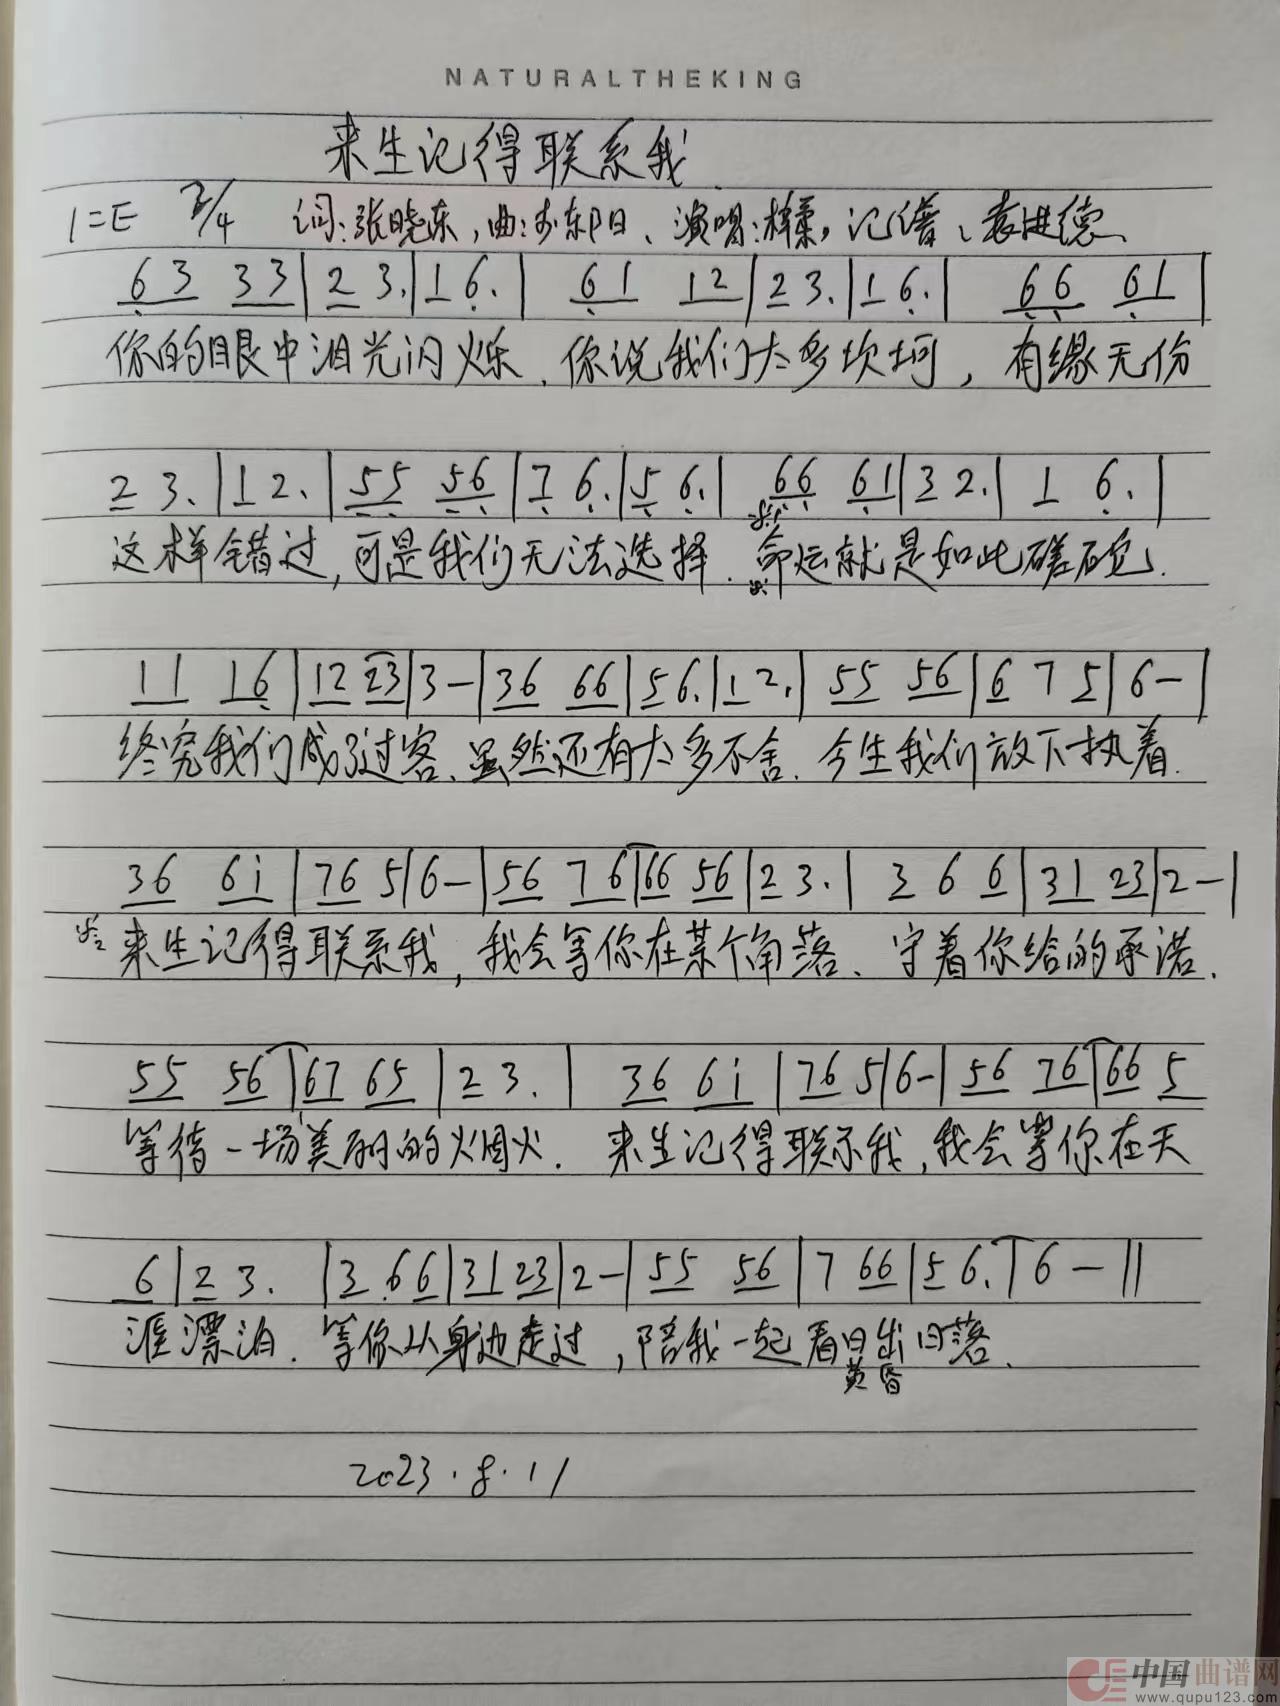 NATURALTHEKING
来生记得联系我
1=E 2/4 词:张晓东,曲: 东阳、演唱:梓柔,记谱、袁进德
63 33|2 3.|1 6.| 61 12|2 3.|1 6.| 66 61|
你的眼中泪光闪烁.你说我们太多坎坷,有缘无份
2 3.|1 2.|55 56|7 6.|5 6.| 66 61|3 2.| 1 6.|
这样错过,可是我们无法选择.命运就是如此磋砣.
11 16|12 23|3-|36 66|5 6.|1 2.| 55 56|6 7 5|6-|
终究我们成了过客、虽然还有太多不舍.今生我们放下执着.
36 6i|76 5|6-|56 76|66 56|2 3.| 3 6 6|31 23|2-|
来生记得联系我,我会等你在某个角落、守着你给的承诺.
55 56|67 65|2 3.| 36 6i|76 5|6-|56 76|66 5
等待一场美丽的烟火.来生记得联系我,我会等你在天
6|2 3.|3.66|31 23|2-|55 56|7 66|5 6.|6-||
涯漂泊.等你从身边走过,陪我一起看日出日落.
黄昏
2023.8.11
中国曲谱网
www.qupu123.com